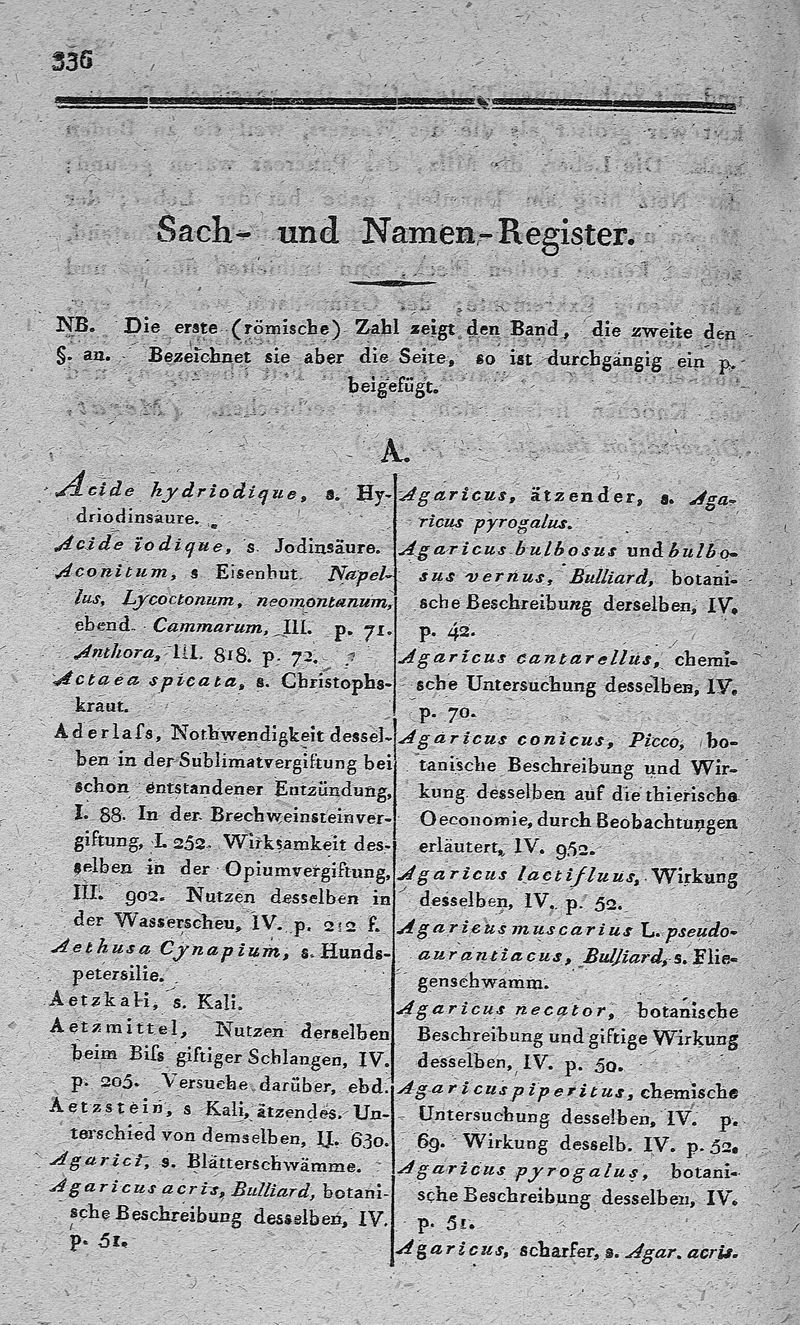 336
Sach- und Namen-Register.
NB. Die erste (römische) Zahl zeigt den Band, die zweite den
§. an. Bezeichnet sie aber die Seite, so ist durchgängig ein p.
beigefügt.
A.
Acide hydriodique, s. Hy-
driodinsäure.
Acide iodique, s. Jodinsäure.
Aconitum, s Eisenhut. Napel-
lus, Lycoctonum, neomontanum,
ebend. Cammarum, III. p. 71.
Anthora, III. 818. p. 72.
Actaea spicata, s. Christophs-
kraut.
Aderlaſs, Nothwendigkeit dessel-
ben in der Sublimatvergiftung bei
schon entstandener Entzündung,
I. 88. In der Brechweinsteinver-
giftung, I. 252. Wirksamkeit des-
selben in der Opiumvergiftung,
III. 902. Nutzen desselben in
der Wasserscheu, IV. p. 212 f.
Aethusa Cynapium, s. Hunds-
petersilie.
Aetzkali, s. Kali.
Aetzmittel, Nutzen derselben
beim Biſs giftiger Schlangen, IV.
p. 205. Versuche darüber, ebd.
Aetzstein, s Kali, ätzendes. Un-
terschied von demselben, II. 630.
Agarici, s. Blätterschwämme.
Agaricus acris, Bulliard, botani-
sche Beschreibung desselben, IV.
p. 51.
Agaricus, ätzender, s. Aga-
ricus pyrogalus.
Agaricus bulbosus und bulbo-
sus vernus, Bulliard, botani-
sche Beschreibung derselben, IV.
p. 42.
Agaricus cantarellus, chemi-
sche Untersuchung desselben, IV.
p. 70.
Agaricus conicus, Picco, bo-
tanische Beschreibung und Wir-
kung desselben auf die thierische
Oeconomie, durch Beobachtungen
erläutert, IV. 952.
Agaricus lactifluus, Wirkung
desselben, IV. p. 52.
Agaricus muscarius L. pseudo-
aurantiacus, Bulliard, s. Flie-
genschwamm.
Agaricus necator, botanische
Beschreibung und giftige Wirkung
desselben, IV. p. 50.
Agaricus piperitus, chemische
Untersuchung desselben, IV. p.
69. Wirkung desselb. IV. p. 52.
Agaricus pyrogalus, botani-
sche Beschreibung desselben, IV.
p. 51.
Agaricus, scharfer, s. Agar. acris.